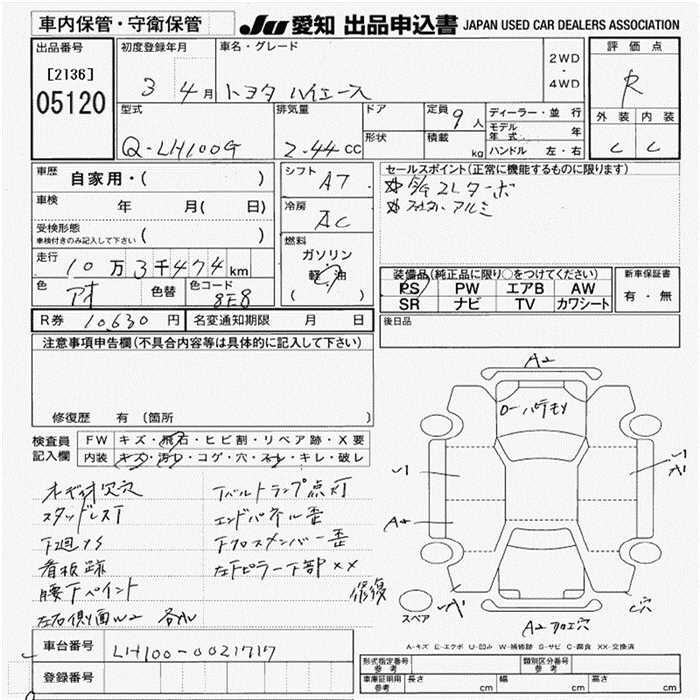 車内保管・守衛保管
JU 愛知 出品申込書 JAPAN USED CAR DEALERS ASSOCIATION
出品番号
[2136]
05120
初度登録年月
3 4月
車名・グレード
トヨタ ハイエース
2WD
・
4WD
評価点
R
外装 内装
C C
型式
Q-LH100G
排気量
2.44cc
ドア
形状
定員
9人
積載
kg
ディーラー・並行
モデル年式 年
ハンドル 左・右
車歴
自家用・( )
車検
年 月( 日)
受検形態
車検付きのみ記入して下さい ( )
走行
10万3千474km
色
アオ
色替
色コード
8E8
R券 10,630円
名変通知期限 月 日
シフト
AT
冷房
AC
燃料
ガソリン
軽油
( )
セールスポイント(正常に機能するものに限ります)
装備品(純正品に限り○をつけてください)
PS PW エアB AW
SR ナビ TV カワシート
新車保証書
有・無
後日品
注意事項申告欄(不具合内容等は具体的に記入して下さい)
修復歴 有 (箇所 )
検査員
記入欄
FW キズ・飛石・ヒビ割・リペア跡・X要
内装 キズ・汚レ・コゲ・穴・スレ・キレ・破レ
オーディオ欠穴
スタッドレスT
下廻りS
看板跡
腰下ペイント
左右側面W2 各ル
Tベルトランプ点灯
エンドパネル歪
下クロスメンバー歪
左Fピラー下部××
修復
A2
ローバチモリ
A2
A1
A2フロエ穴
C穴
スペア
A-キズ E-エクボ U-凹み W-補修跡 S-サビ C-腐食 XX-交換済
車台番号
LH100-0021717
登録番号
形式指定番号
参考
類別区分番号
参考
車庫証明用
参考
長さ cm
幅 cm
高さ cm